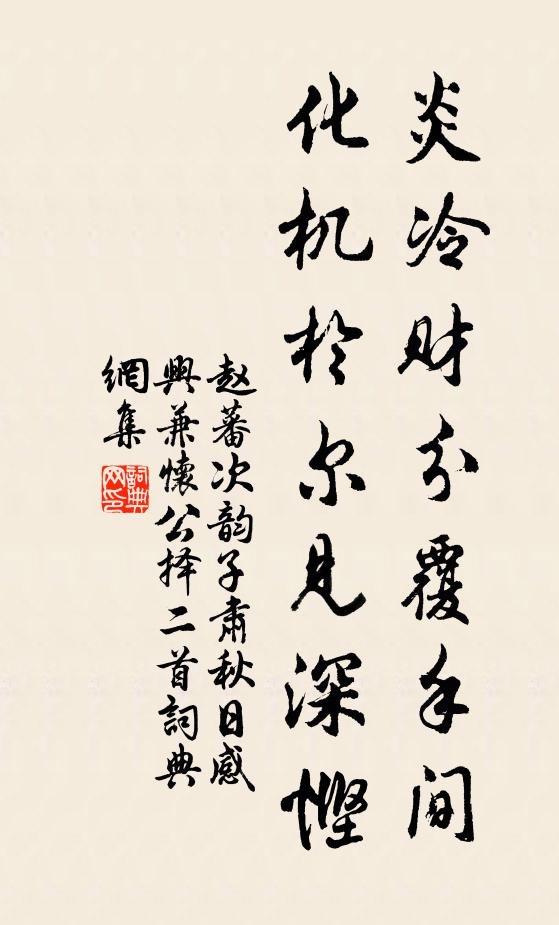 炎冷财分覆手间
化机於尔见深悭
赵蕃次韵子肃秋日感
興兼懷公择二首詞典
網集
詞典网印